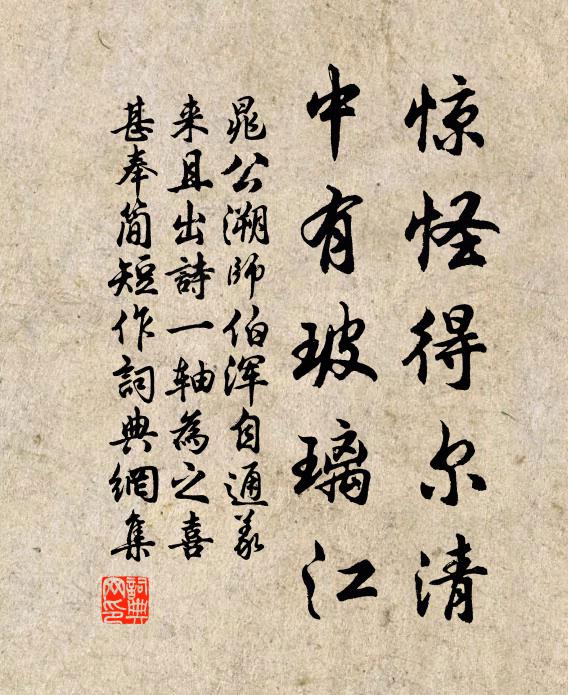 惊怪得尔清
中有玻璃江
晁公溯师伯浑自通义
来且出詩一軸為之喜
甚奉简短作詞典網集
詞典网印